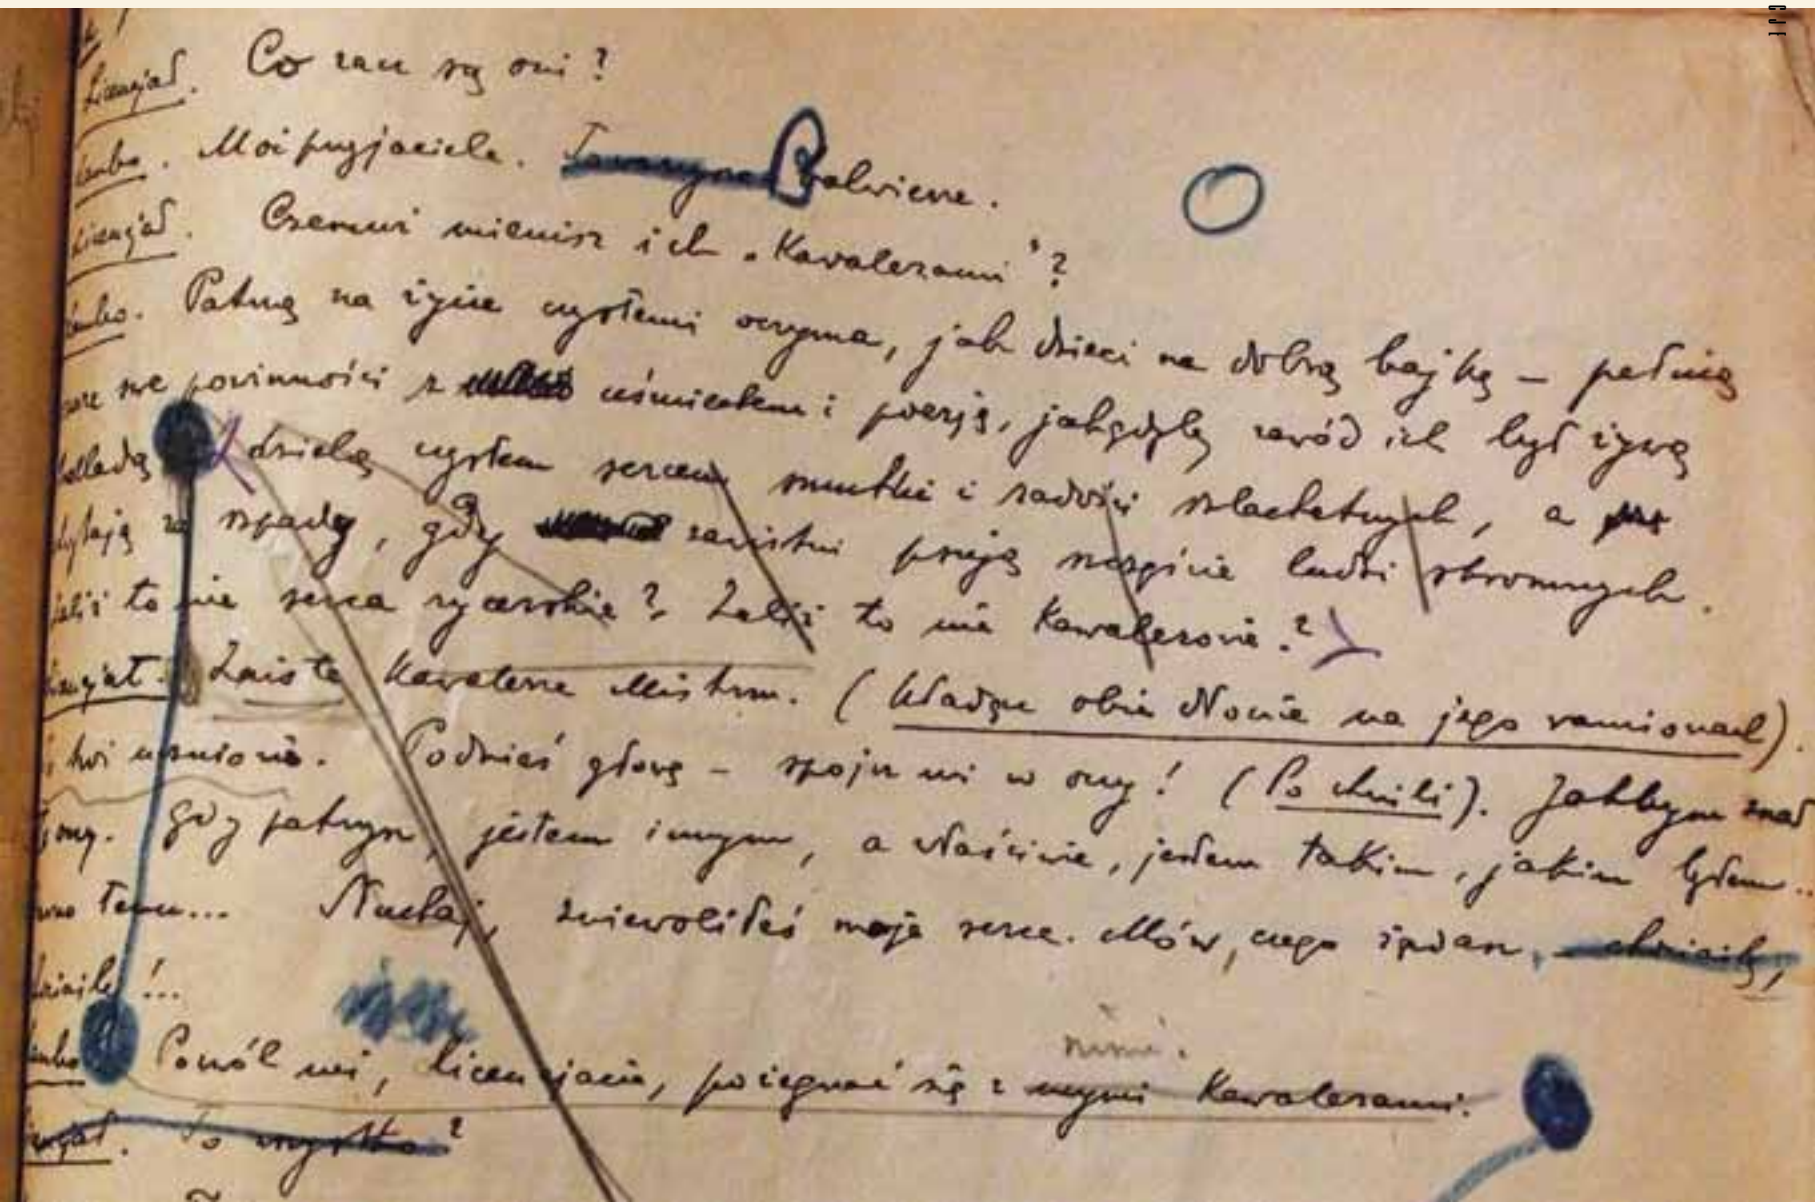 Licencjat. Co zacz są oni?
Moi przyjaciele. Towarzysze Balwierze.
Licencjat. Czemuż mienisz ich „Kawalerami"?
Patrzą na życie czystemi oczyma, jak dzieci na dobrą bajkę – pełnią
swe powinności z uśmiechem i poezją, jakgdyby zawód ich był żywą
balladą dzielą czystem sercem smutki i radości szlachetnych, a
chytają za szpadę, gdy zawistni psują szczęście ludzi skromnych.
Zaliż to nie serca rycerskie? Zaliż to nie Kawalerowie?
Licencjat. Zaiste Kawalerze Mistrzu. (Kładąc obie dłonie na jego ramionach).
Podnieś głowę – spojrz mi w oczy! (Po chwili). Jakbym znał
oczy. Gdy patrzysz, jestem innym, a właściwie, jestem takim, jakim byłem..
temu... Słuchaj, zniewoliłeś moje serce. Mów, czego żądasz, chciałby,
!...
Pozwól mi, Licencjacie, pożegnać się z nimi. mymi Kawalerami.
To wszystko?